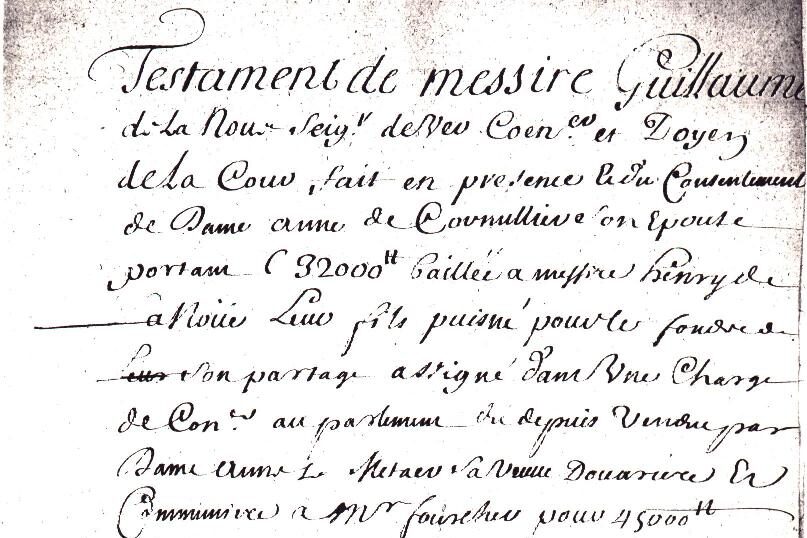 Testament de messire Guillaume
de la Noue Seigr de Ver Coener et Doyen
de la Cour, fait en presence & du Consentement
de Dame anne de Cornulliere son Epouse
portant 32000tt baillée a messire henry de
la Noüe Leur fils puisné pour le fondre de
leur son partage assigné dans Une Charge
de Coner au parlement du depuis Vendue par
Dame anne Le Metaer sa Veuve Douairiere Et
Communiere a Mr fourcher pour 45000tt